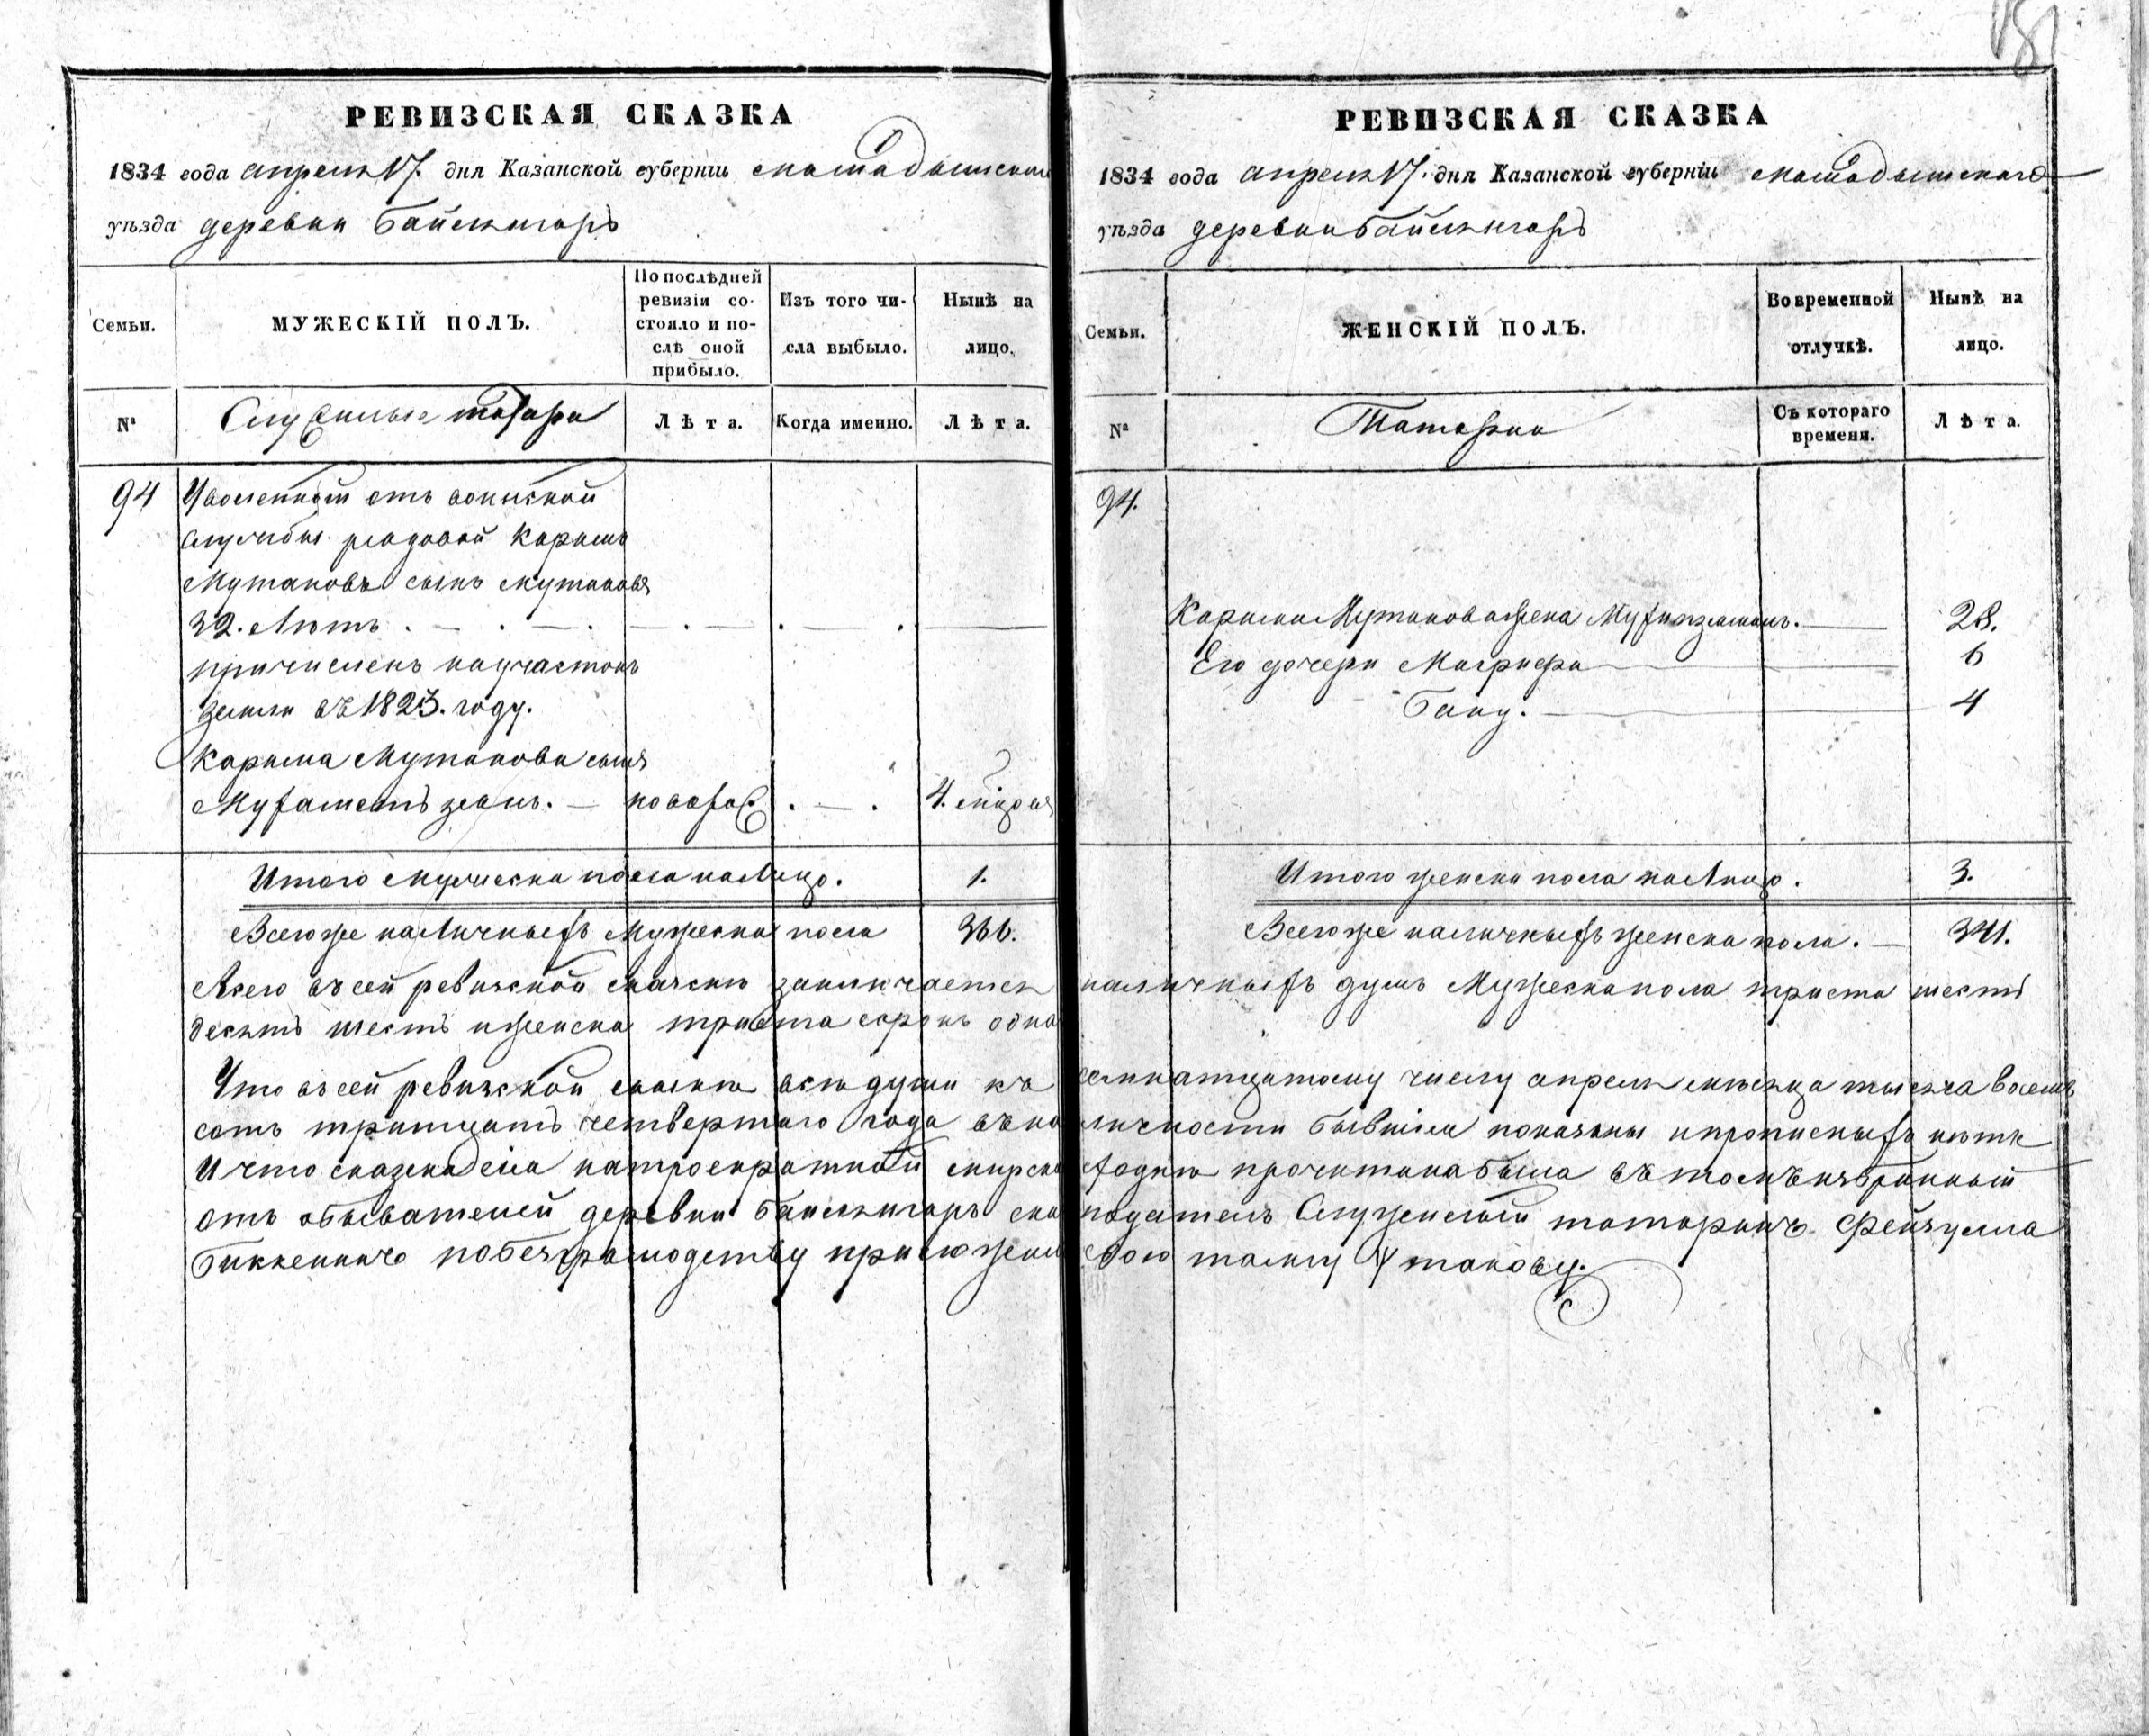 181
РЕВИЗСКАЯ СКАЗКА
1834 года апреля 17. дня Казанской губерніи мамадышскаго
уѣзда деревни Байлянгаръ
Семьи.
МУЖЕСКІЙ ПОЛЪ.
По послѣдней ревизіи состояло и послѣ оной прибыло.
Изъ того числа выбыло.
Нынѣ на лицо.
№
Служилые татара
Лѣта.
Когда именно.
Лѣта.
94
Уволенной отъ воинской
службы рядовой Каримъ
Мутановъ сынъ мутановъ
32. Лютъ
причисленъ научастокъ
земли въ 1823. году.
Карима Мутанова сынъ
Мухаметъ зянъ. — новорож. 4. мѣцовъ
Итого мужеска пола налицо. 1.
Всегоже наличныхъ мужеска пола 366.
РЕВИЗСКАЯ СКАЗКА
1834 года апреля 17. дня Казанской губерніи мамадышскаго
уѣзда деревни Байлянгаръ
Семьи.
ЖЕНСКІЙ ПОЛЪ.
Во временной отлучкѣ.
Нынѣ на лицо.
№
Татарки
Съ котораго времени.
Лѣта.
94.
Карима Мутанова жена 28.
Его дочери Магрифа 6
Бану. 4
Итого женска пола налицо. 3.
Всегоже наличныхъ женска пола. — 341.
Всего въ сей ревизской сказкѣ заключается наличныхъ душъ Мужеска пола триста шестъ
десятъ шесть и женска триста сорокъ одна
Что въ сей ревизской сказкѣ всѣ души къ семнатцатому числу апреля мѣсяца тысяча восемь
сотъ тритцать четвертаго года въ наличности бывшіи показаны и прописныхъ нѣтъ
И что сказка сія на троекратной мирской сходкѣ прочитана была въ томъ избранный
отъ обывателей деревни Байлянгаръ сказкоподатель Служилый татаринъ Фейзулла
Биккенинъ по безграмотству приложилъ свою тамгу такову.